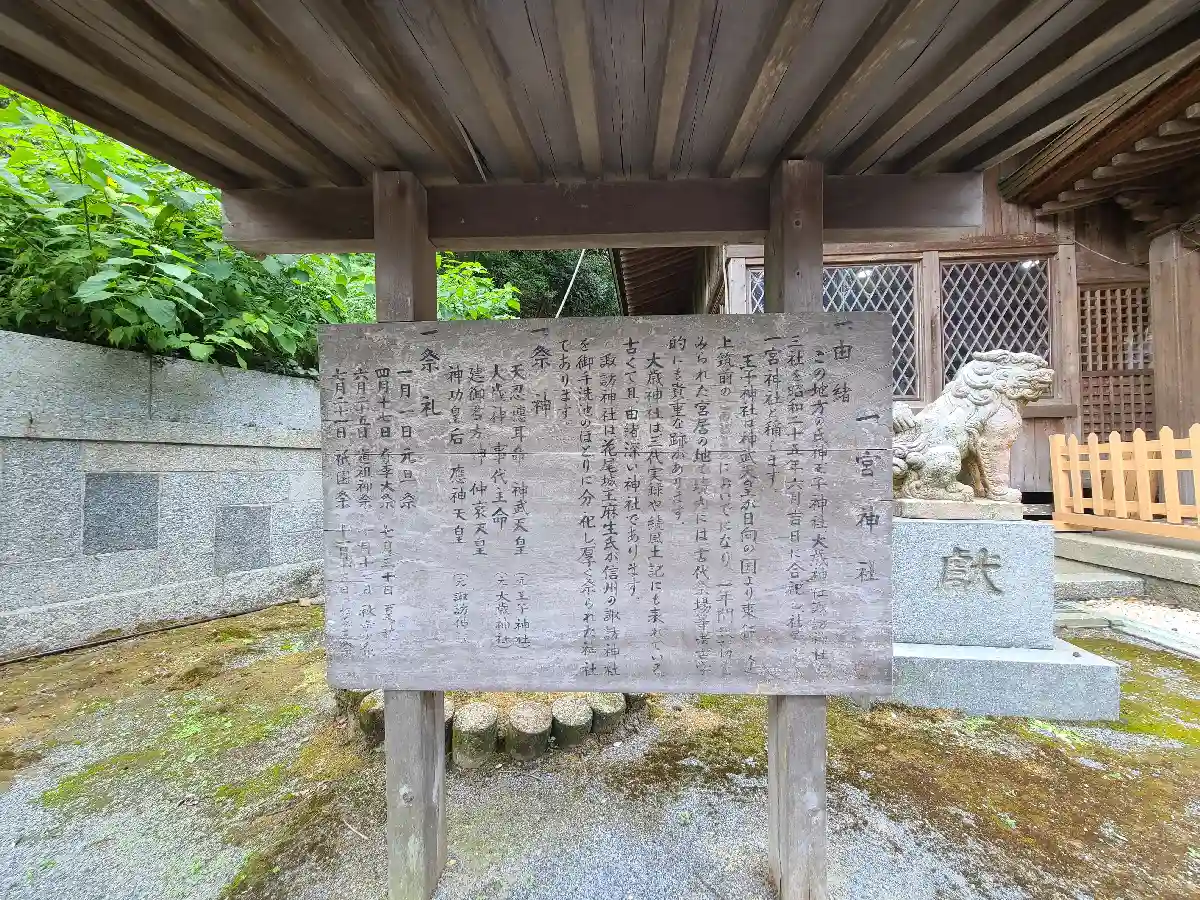 一宮神社
一 由緒
この地方の氏神王子神社大歳神社諏訪神社の
三社を昭和二十五年六月吉日に合祀し社号を
一宮神社と称します。
王子神社は神武天皇が日向の国より東
上筑前の においでになり 一年間
みられた宮居の地で境内には古代祭場等考古学
的にも貴重な跡があります。
大歳神社は三代実録や続風土記にも表れている
古くても由緒深い神社であります。
諏訪神社は花尾城主麻生氏が信州の諏訪神社
を御手洗池のほとりに分祀し厚く祭られた神社
であります。
一 祭神
天忍穂耳命 神武天皇 (元王子神社)
大歳神 事代主命 (元大歳神社)
建御名方命 仲哀天皇
神功皇后 應神天皇 (元諏訪神社)
一 祭礼
一月一日元旦祭
四月十七日春季大祭 七月三十日
六月十五日 祖神祭 十月十二日 秋季大祭
六月二十一日祇園祭 十一月
献